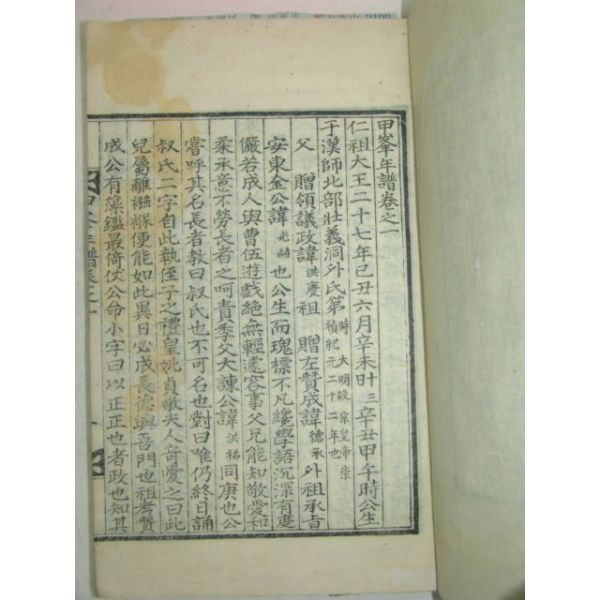 甲峯年譜卷之一
仁祖大王二十七年己丑六月辛未廿三辛丑甲午時公生
時大明毅宗皇帝崇
禎紀元二十二年也
于漢師北部壯義洞外氏第
父 贈領議政諱洪慶祖 贈左贊成諱德承外祖承旨
安東金公諱也公生而瑰標不凡纔學語沉深有度
儼若成人與曹伍遊戲絶無輕遽容事父兄能知敬愛和
柔承意不勞長者之呵責季父大諫公諱洪福同庚也公
嘗呼其名長者教曰叔氏也不可名也對曰唯仍終日誦
叔氏二字自此執侄子之禮皇妣貞敬夫人奇愛之曰此
兒屬離襁褓便能如此異日必成長德興吾門也祖考贊
成公有藻鑑最倚仗公命小字曰以正正也者政也知其